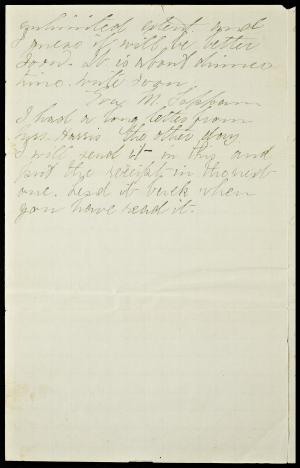 unlimited extent and
I guess it will be better
soon. It is about dinner
time. Write soon
M. Tappan.
I had a long letter from
Mrs. Harris the other day
I will send it in this and
put the receipt in the next
one. Send it back when
you have read it.